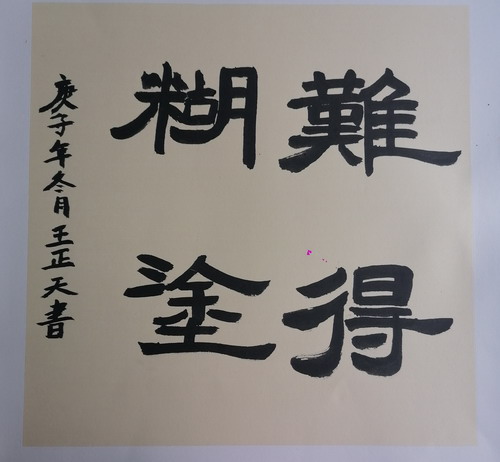 難得
糊塗
庚子年冬月王正天書